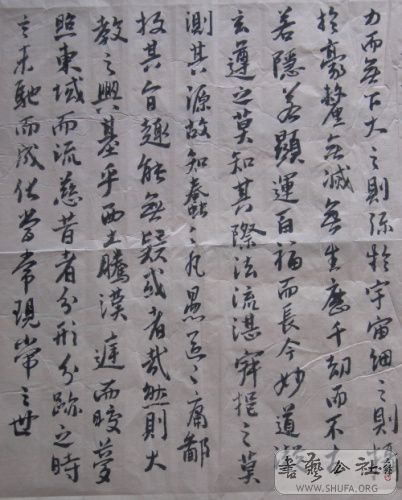 力而無下大之則弥於宇宙細之則攝
於豪釐無滅無生歷千劫而不古
若隱若顯運百福而長今妙道凝
玄遵之莫知其際法流湛寂挹之莫
測其源故知蠢〻凡愚區〻庸鄙
投其旨趣能無疑或者哉然則大
教之興基乎西土騰漢庭而皎夢
照東域而流慈昔者分形分跡之時
言未馳而成化當常現常之世
書藝公社
WWW.SHUFA.ORG